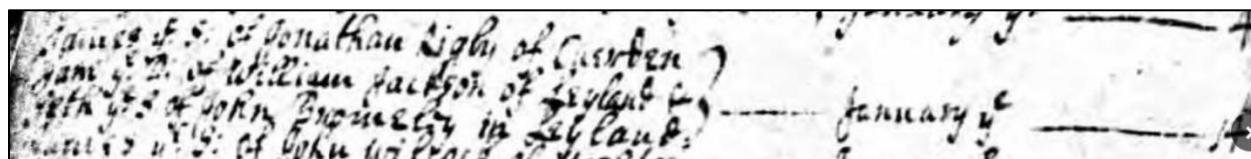 January ye
James ye S: of Jonathan Rigby of Cuerden
Jam ye D: of William Jackson of Leyland &
Seth ye S of John Bromeley in Leyland January ye
James ye S: of John